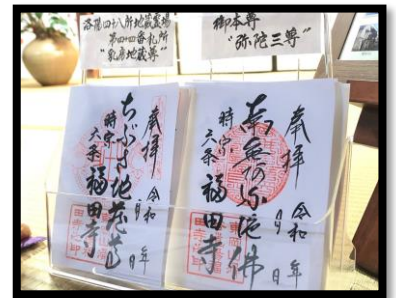 洛陽四十八所地蔵霊場
第四十四番札所
"乳房地蔵尊"
御本尊
"弥陀三尊"
奉拝
令和 年 月 日
ちぶさ地蔵尊
時宗
六条
福田寺
奉拝
令和 年 月 日
南無阿弥陀佛
時宗
六条
福田寺